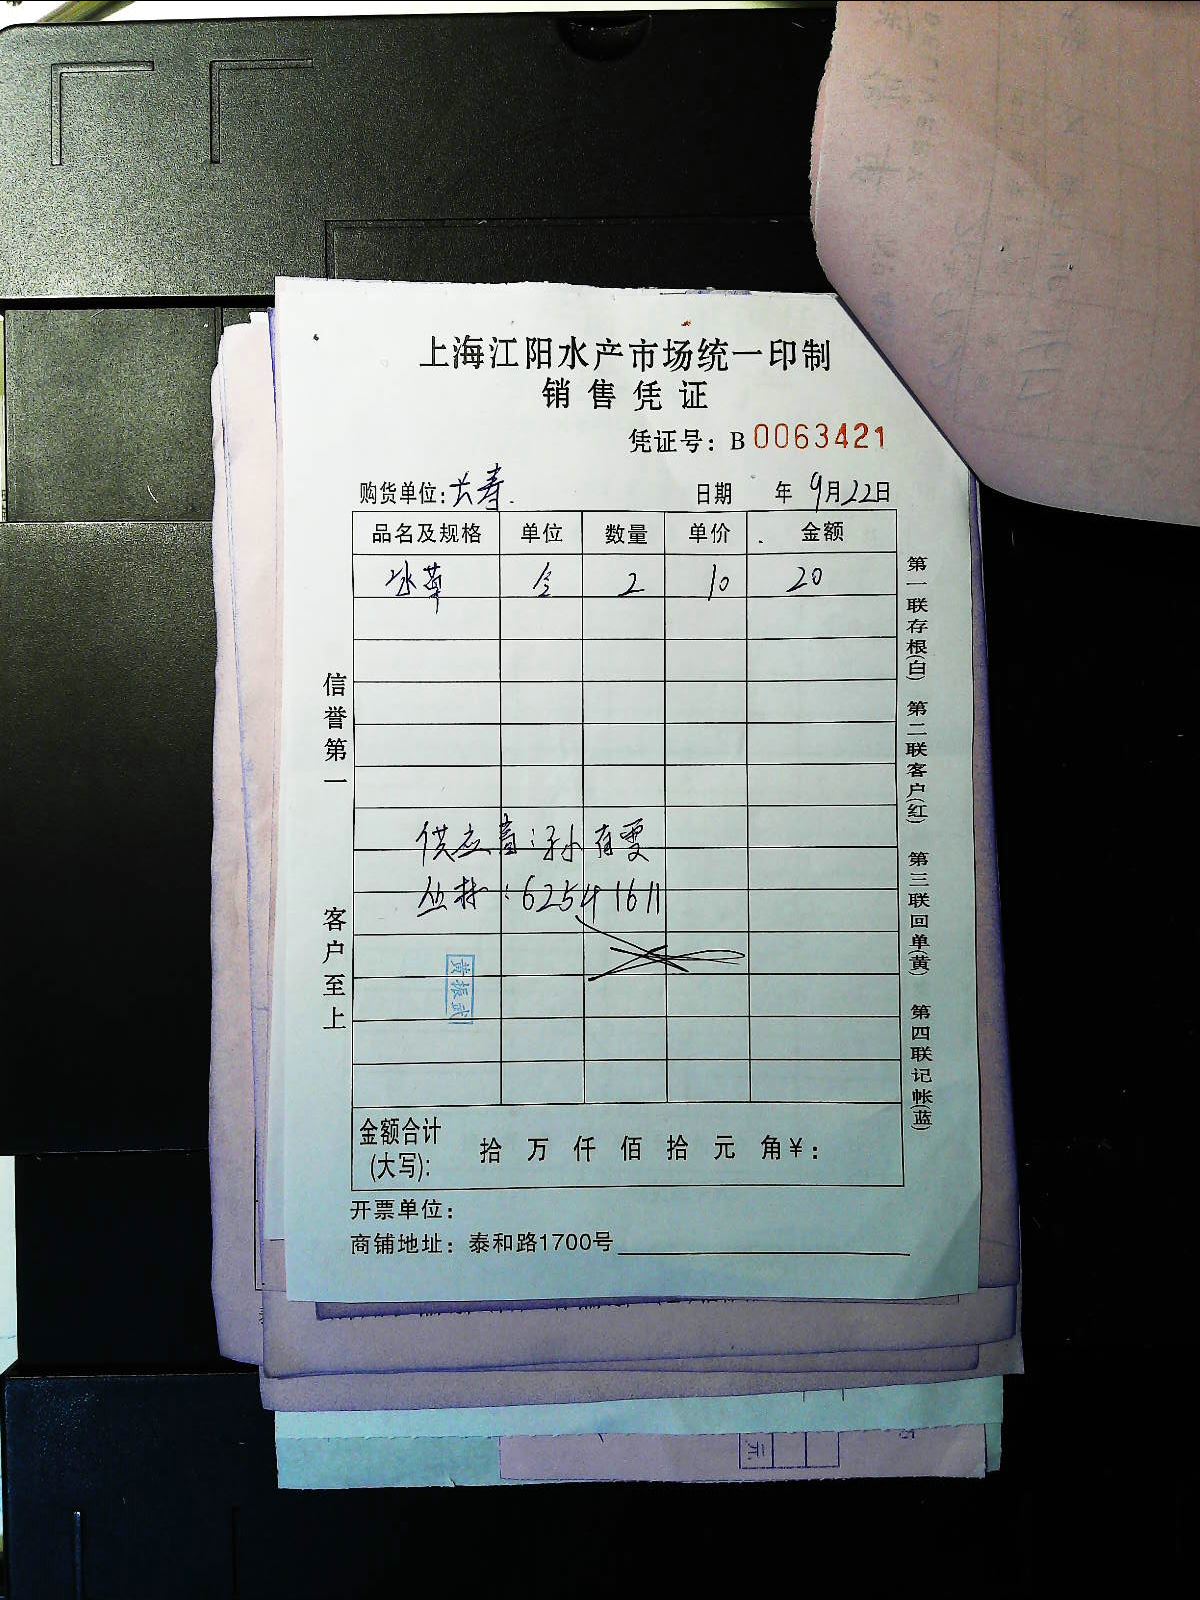 上海江阳水产市场统一印制
销售凭证
凭证号：B 0063421
购货单位：长寿. 日期 年 9月22日
品名及规格 单位 数量 单价 金额
冰草 2 10 20
信誉第一 客户至上
供应商：孙有雯
丛林：62541611
黄振武
金额合计
(大写)：
拾 万 仟 佰 拾 元 角 ¥：
开票单位：
商铺地址：泰和路1700号
第一联存根(白) 第二联客户(红) 第三联回单(黄) 第四联记帐(蓝)